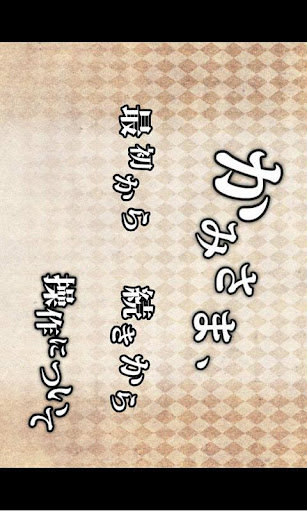 かみさま、
最初から
続きから
操作について